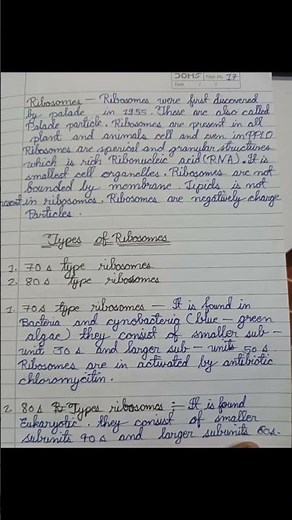 DOMS Page No. 17
Date / /
Ribosomes — Ribosomes were first discovered
by palade in 1955. These are also called
Palade particle. Ribosomes are present in all
plant and animals cell and even in PPLO
Ribosomes are sperical and granular structures
which is rich Ribonucleic acid (RNA). It is
smallest cell organelles. Ribosomes are not
bounded by membrane. Lipids is not
in ribosomes. Ribosomes are negatively charge
Particles.
Types of Ribosomes
1. 70 s type ribosomes
2. 80 s type ribosomes
1. 70 s type ribosomes — It is found in
Bacteria and cynobacteria (blue - green
algae) they consist of smaller sub -
unit 30 s and larger sub - units 50 s.
Ribosomes are in activated by antibiotic
chloromycetin.
2. 80 s Types ribosomes :- It is found
Eukaryotic. they consist of smaller
subunits 40 s and larger subunits 60s.